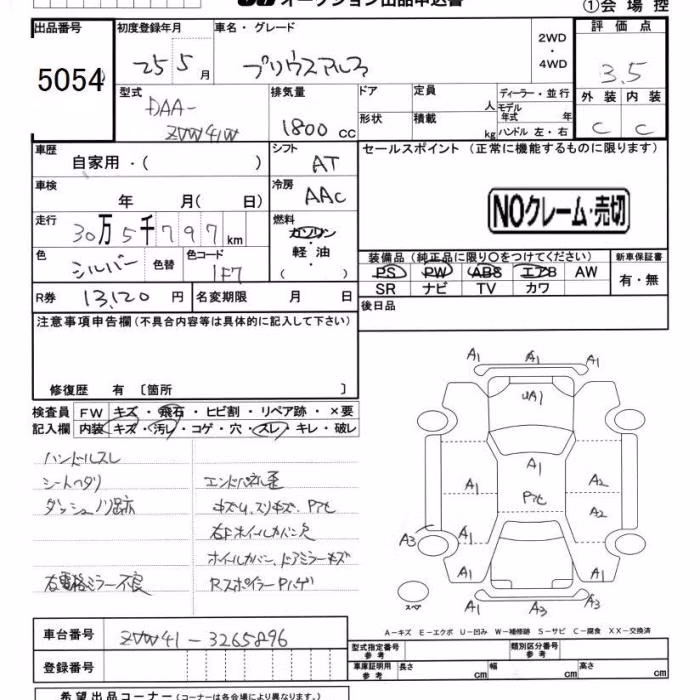 オークション出品申込書
①会場控
出品番号 初度登録年月 車名・グレード 評価点
5054 25 5月 プリウスアルファ 2WD・4WD 3.5
型式 排気量 ドア 定員 人 ディーラー・並行 外装 内装
DAA-ZVW41W 1800cc 形状 積載 kg モデル年式 年 ハンドル 左・右 C C
車歴 シフト セールスポイント (正常に機能するものに限ります)
自家用・( ) AT
車検 年 月( 日) 冷房 AAC
NOクレーム・売切
走行 30万5千797km 燃料 ガソリン・軽油・( )
色 シルバー 色替 色コード 1F7
装備品 (純正品に限り○をつけてください) 新車保証書
PS PW ABS エアB AW 有・無
SR ナビ TV カワ
R券 13,120円 名変期限 月 日 後日品
注意事項申告欄 (不具合内容等は具体的に記入して下さい)
修復歴 有 〔箇所 〕
検査員記入欄 FW キズ・飛石・ヒビ割・リペア跡・×要
内装 キズ・汚レ・コゲ・穴・スレ・キレ・破レ
ハンドルスレ
シートヘタリ エンドパネル歪
ダッシュノリ跡 キズU、スリキズ、Pアセ
右Fホイールカバー欠
ホイールカバー、ドアミラーキズ
右電格ミラー不良 Rスポイラーハゲ
A1 A1 A1
UA1
A1 A2
Pアセ A2
A3 A1 A1
A1 A1
スペア A1 A3 A1
A-キズ E-エクボ U-凹み W-補修跡 S-サビ C-腐食 XX-交換済
車台番号 ZVW41-3265896
型式指定番号 参考 類別区分番号 参考
登録番号 車庫証明用 参考 長さ cm 幅 cm 高さ cm
希望出品コーナー (コーナーは各会場により異なります。)